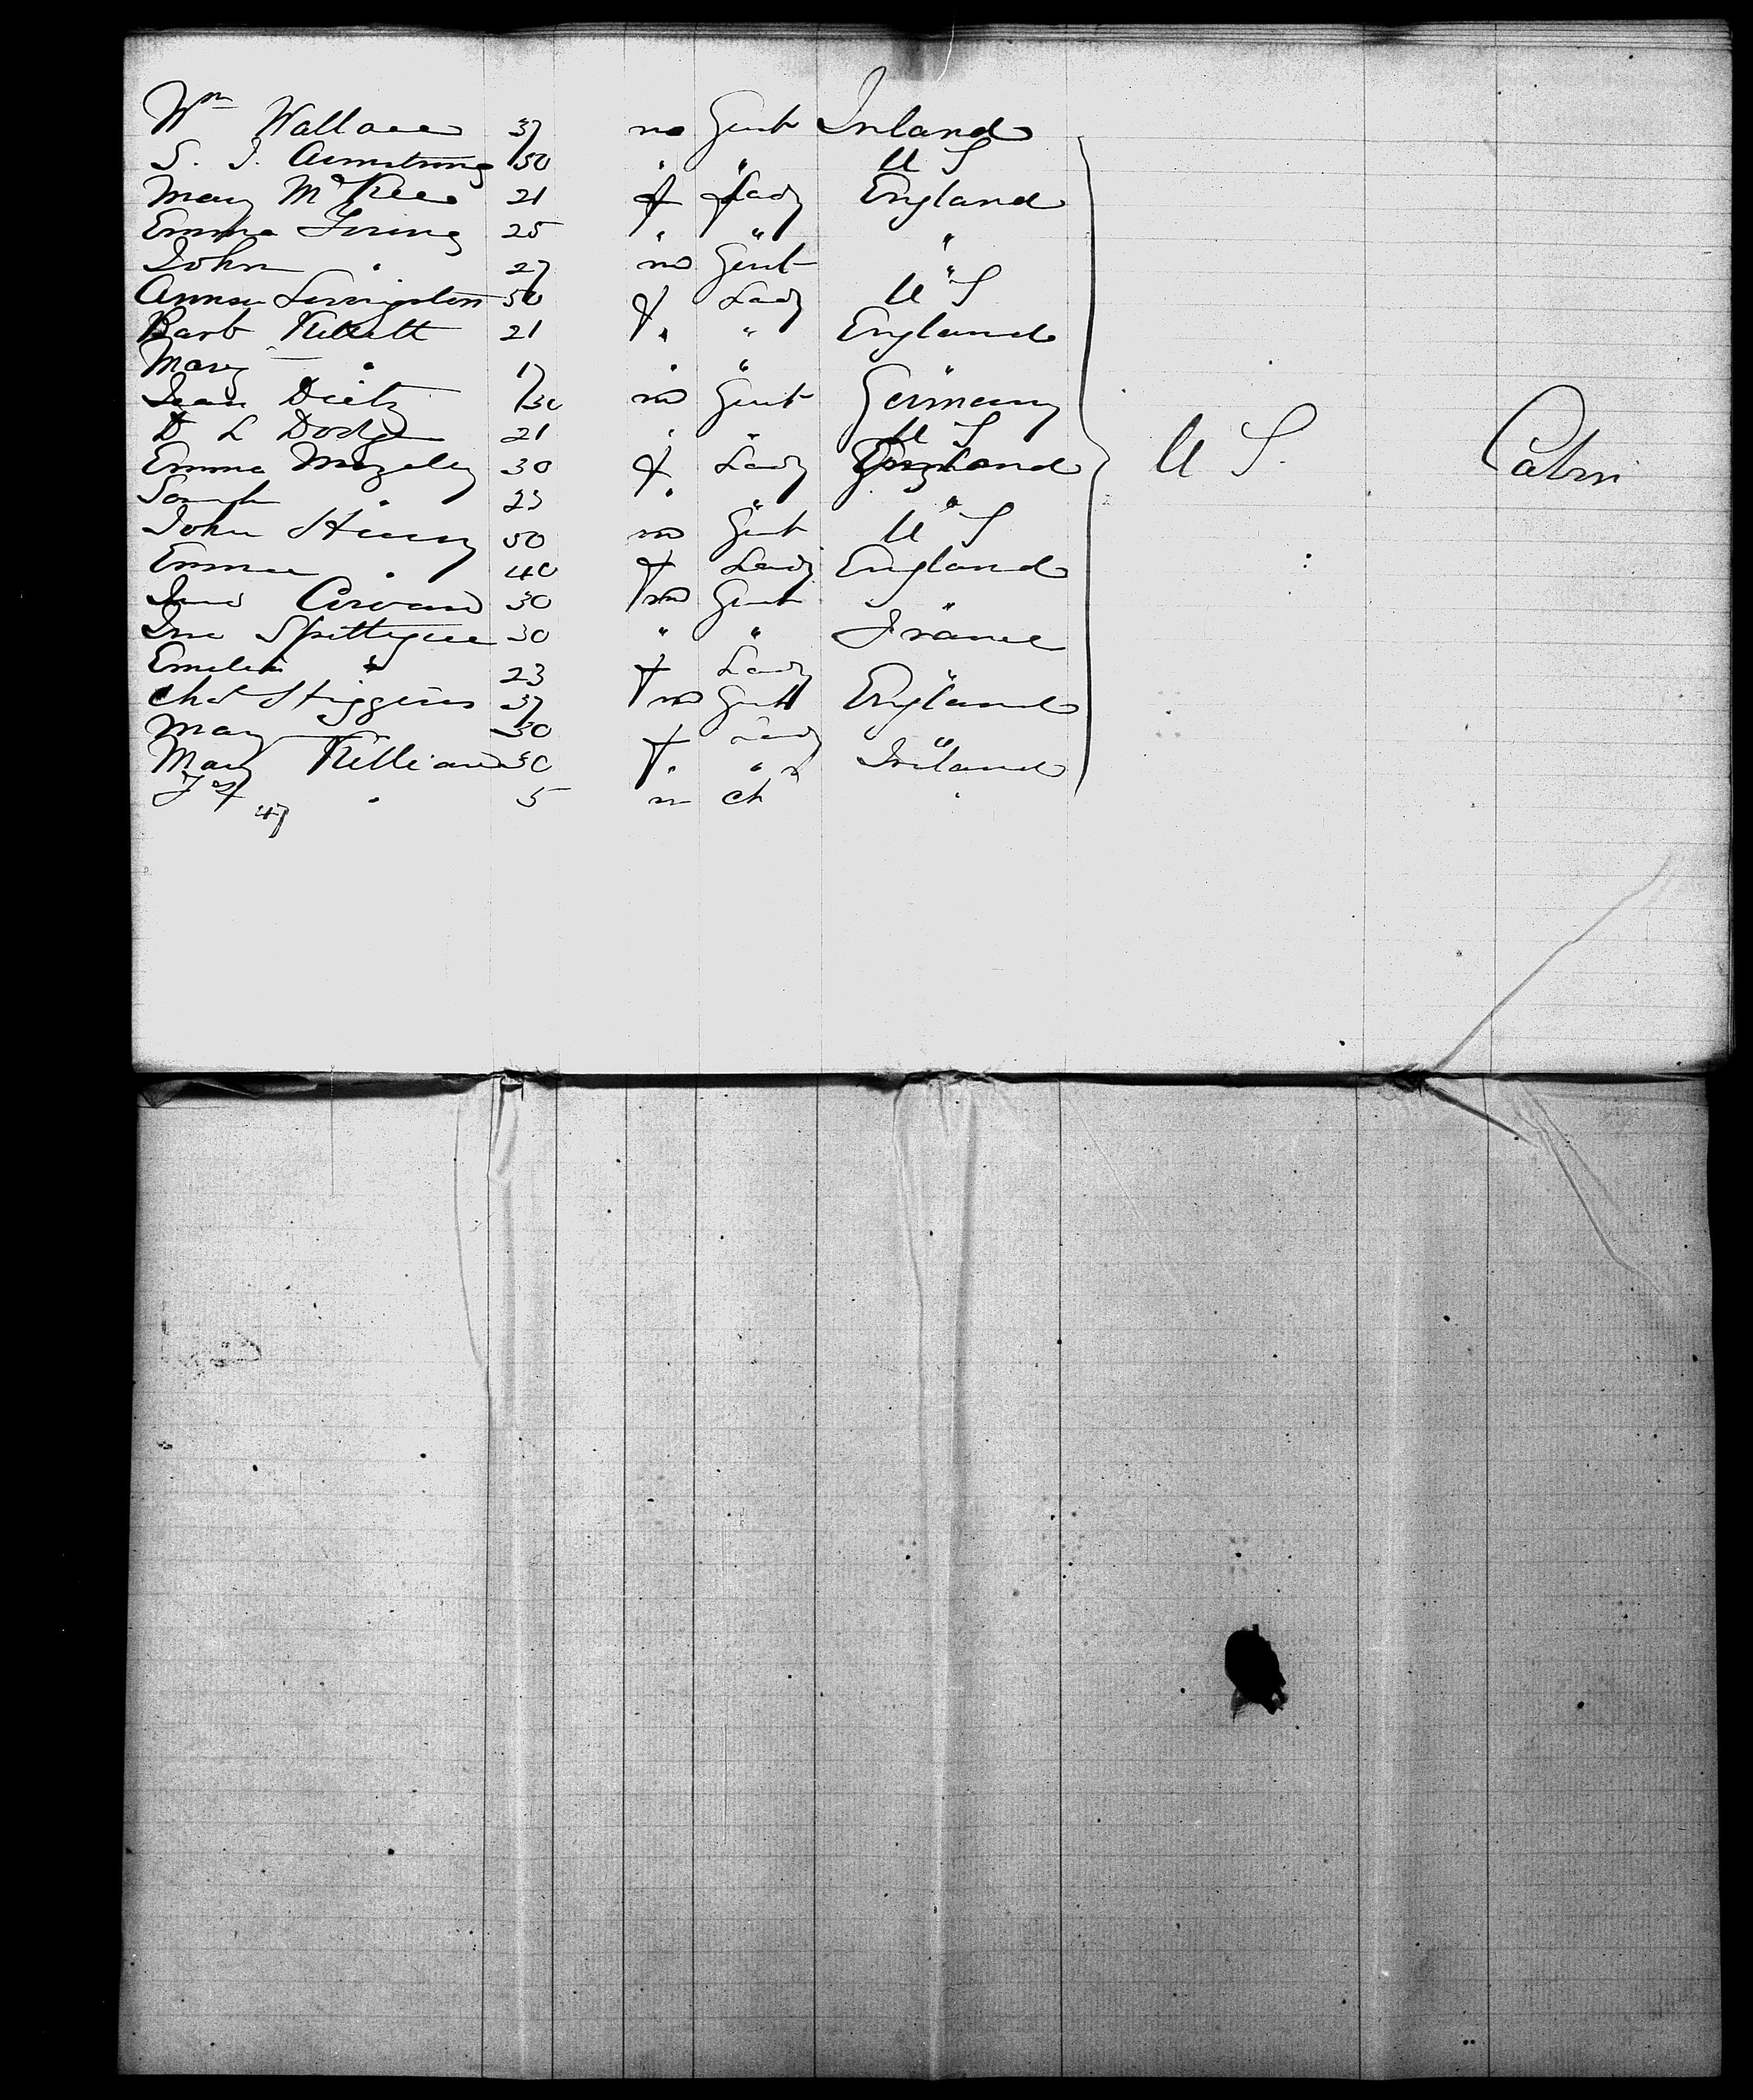 Wm Wallace 37 m Gent Ireland
S. J. Armstrong 50 " " U S
Mary McKee 21 f Lady England
Emma 25 " " "
John " 27 m Gent "
Livingston 50 f Lady U S
Barb 21 " " England
Mary " 17 " " "
Dietz 30 m Gent Germany
D L Dodge 21 " " U S
Emma Mozeley 30 f Lady England U S. Cabin
Sarah " 23 " " "
John Henry 50 m Gent U S
Emma " 40 f Lady England
30 m Gent "
Spettigue 30 " " France
" 23 f Lady "
Chas Higgins 37 m Gent England
Mary 30 f Lady "
Mary Killian 30 " " Ireland
" 5 m ch "
47